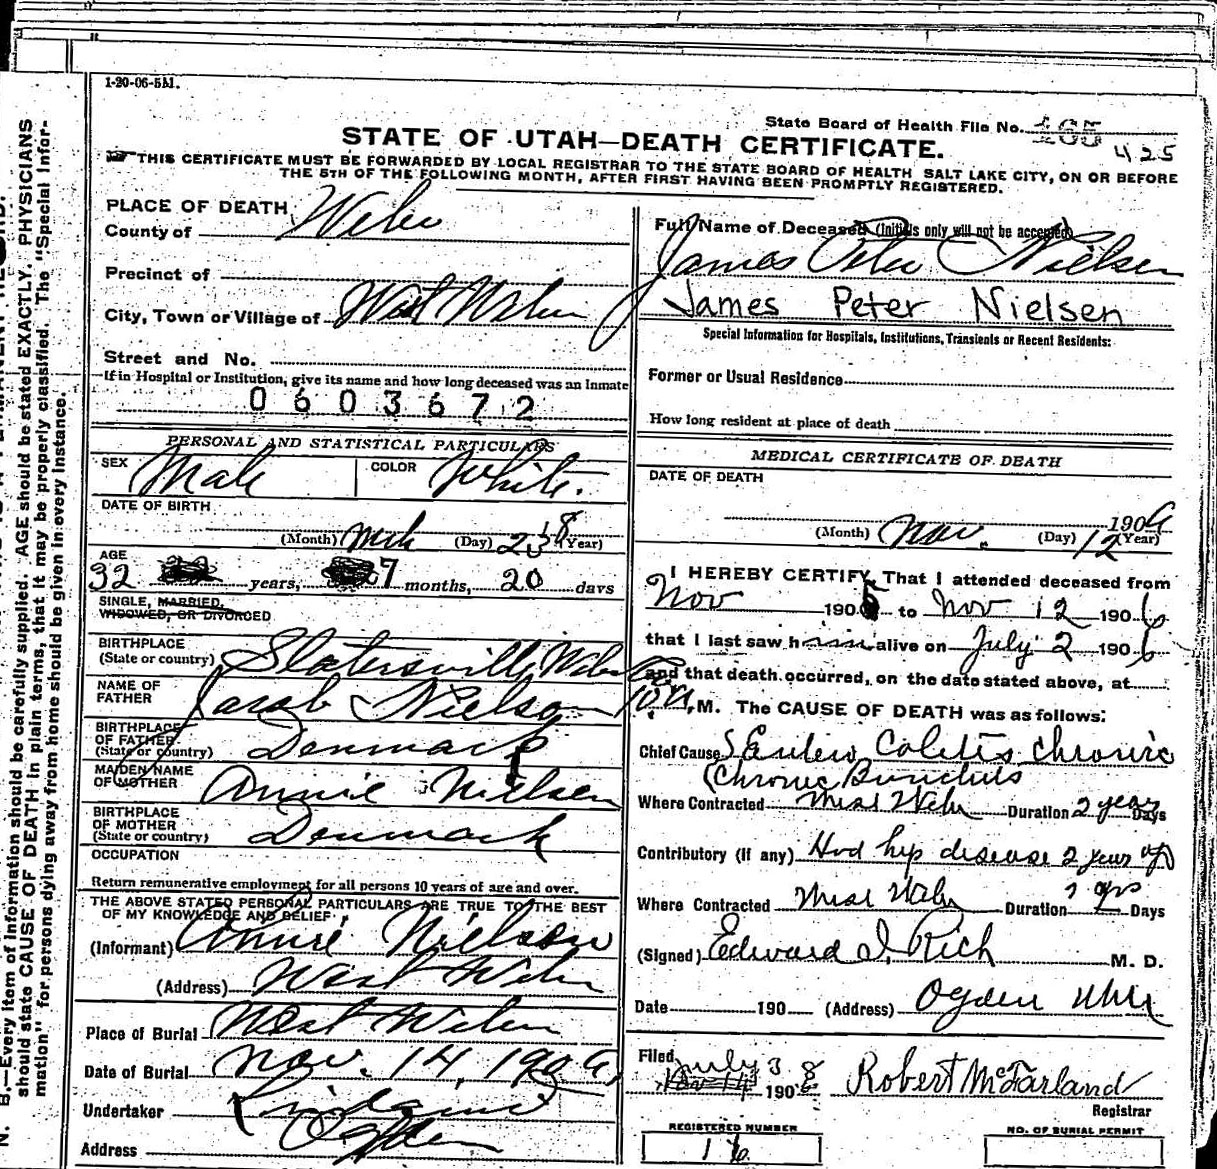 1-20-06-5M.
State Board of Health File No. 165
425
STATE OF UTAH—DEATH CERTIFICATE.
THIS CERTIFICATE MUST BE FORWARDED BY LOCAL REGISTRAR TO THE STATE BOARD OF HEALTH SALT LAKE CITY, ON OR BEFORE
THE 5TH OF THE FOLLOWING MONTH, AFTER FIRST HAVING BEEN PROMPTLY REGISTERED.
PLACE OF DEATH,
County of Weber
Precinct of
City, Town or Village of West Weber
Street and No.
If in Hospital or Institution, give its name and how long deceased was an Inmate
0603672
PERSONAL AND STATISTICAL PARTICULARS
SEX Male COLOR White.
DATE OF BIRTH
(Month) Mch (Day) 23 (Year)
AGE
32 years, 7 months, 20 days
SINGLE, MARRIED,
WIDOWED, OR DIVORCED
BIRTHPLACE
(State or country) Slatersville Weber Co.
NAME OF
FATHER Jacob Nielson
BIRTHPLACE
OF FATHER
(State or country) Denmark
MAIDEN NAME
OF MOTHER Annie Nielsen
BIRTHPLACE
OF MOTHER
(State or country) Denmark
OCCUPATION
Return remunerative employment for all persons 10 years of age and over.
THE ABOVE STATED PERSONAL PARTICULARS ARE TRUE TO THE BEST
OF MY KNOWLEDGE AND BELIEF
(Informant) Annie Nielson
(Address) West Weber
Place of Burial West Weber
Date of Burial Nov. 14, 1906
Undertaker
Address Ogden
Full Name of Deceased (Initials only will not be accepted)
James Peter Nielsen
James Peter Nielsen
Special Information for Hospitals, Institutions, Transients or Recent Residents:
Former or Usual Residence
How long resident at place of death
MEDICAL CERTIFICATE OF DEATH
DATE OF DEATH
1906
(Month) Nov. (Day) 12 (Year)
I HEREBY CERTIFY, That I attended deceased from
Nov 1905 to Nov 12 1906
that I last saw him alive on July 2 1906
and that death occurred, on the date stated above, at
10 A.M. The CAUSE OF DEATH was as follows:
Chief Cause Entero Colitis Chronic
Chronic Bronchitis
Where Contracted West Weber Duration 2 years Days
Contributory (if any) Had hip disease 2 years ago
Where Contracted West Weber Duration yrs Days
(Signed) Edward I. Rich M. D.
Date 190 (Address) Ogden Utah
Filed July 3 1908 Robert McFarland
Registrar
REGISTERED NUMBER
16
NO. OF BURIAL PERMIT
N. B.—Every item of information should be carefully supplied. AGE should be stated EXACTLY. PHYSICIANS
should state CAUSE OF DEATH in plain terms, that it may be properly classified. The "Special Infor-
mation" for persons dying away from home should be given in every instance.